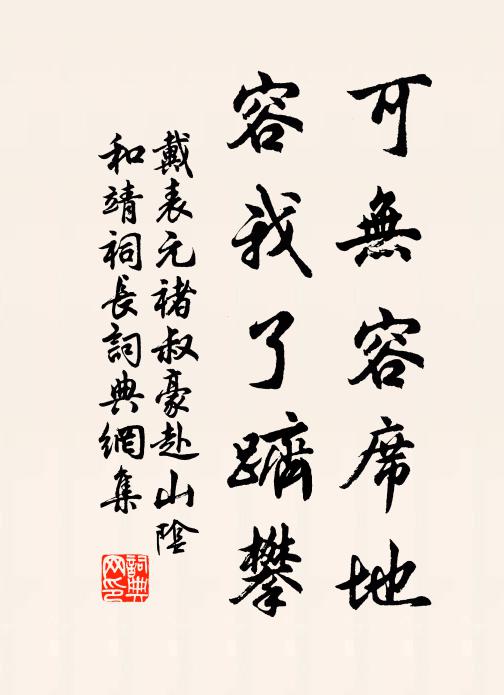 可無容席地
容我了躋攀
戴表元褚叔豪赴山陰
和靖祠長詞典網集
詞典
网印